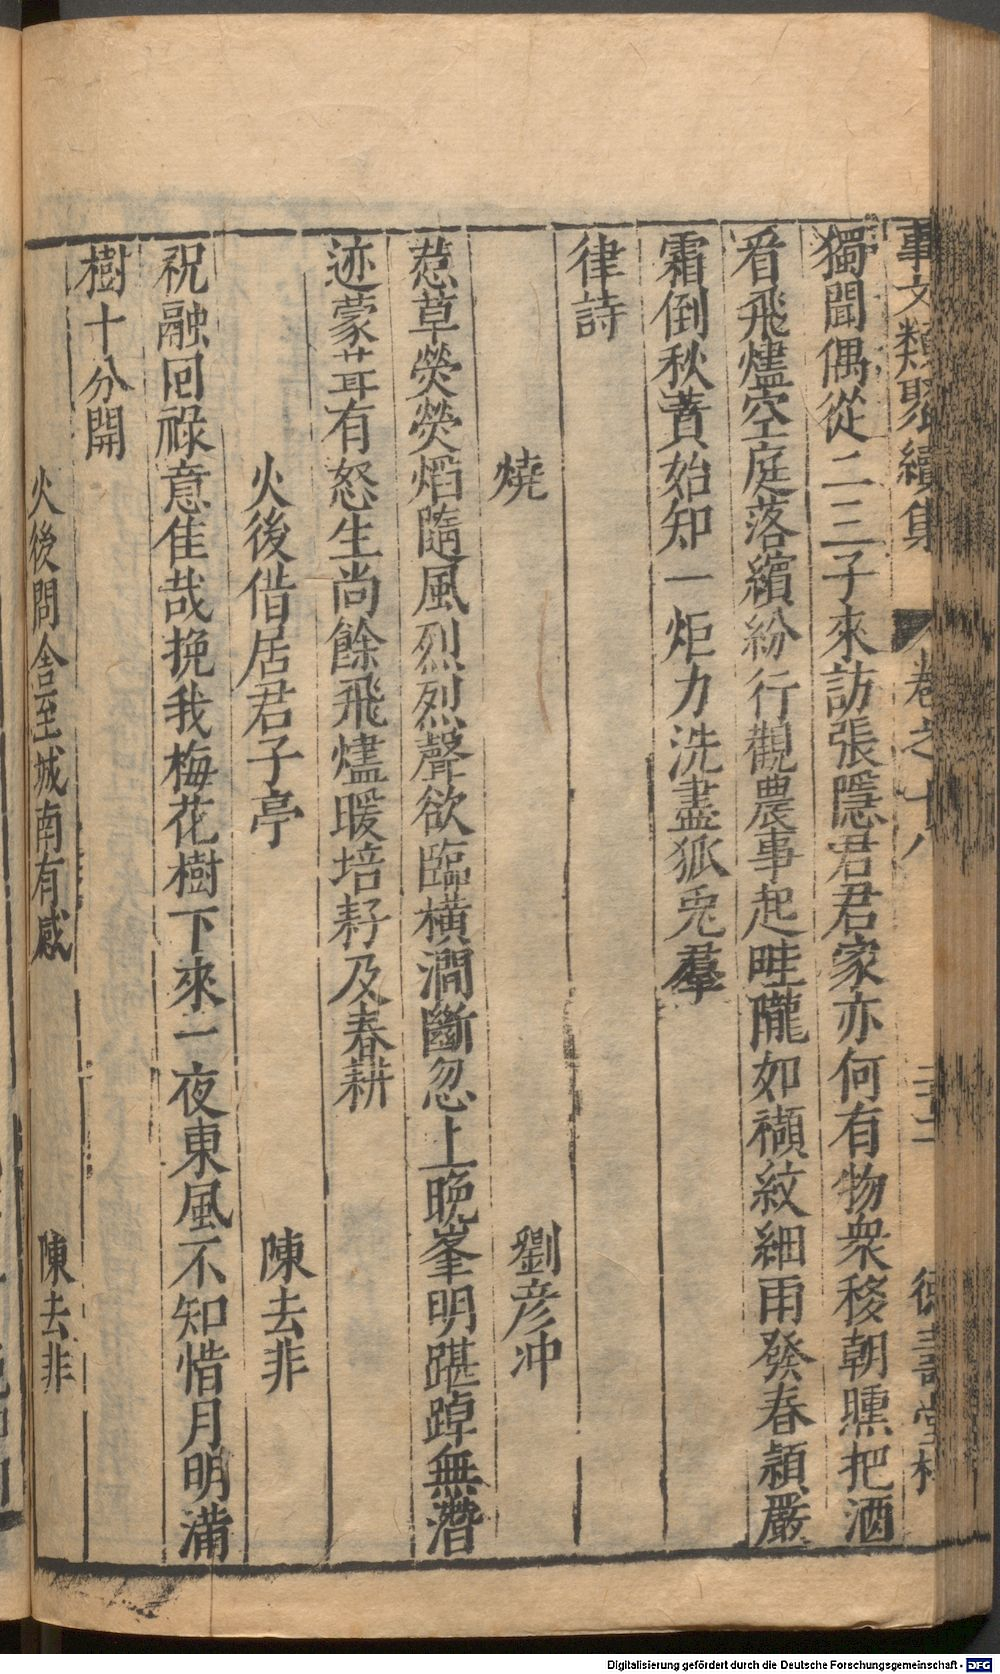 事文類聚續集 卷之十八 德壽堂梓
獨聞偶從二三子來訪張隱君君家亦何有物衆移朝曛把酒
看飛燼空庭落繽紛行觀農事起畦隴如纈紋細雨發春穎嚴
霜倒秋蕡始知一炬力洗盡狐兎羣
律詩
燒 劉彦冲
惹草熒熒熖隨風烈烈聲欲臨橫澗斷忽上晚峯明踸踔無潛
迹蒙茸有怒生尚餘飛燼暖培耔及春耕
火後借居君子亭 陳去非
祝融囘祿意佳哉挽我梅花樹下來一夜東風不知惜月明滿
樹十分開
火後問舍至城南有感 陳去非
Digitalisierung gefördert durch die Deutsche Forschungsgemeinschaft - DFG